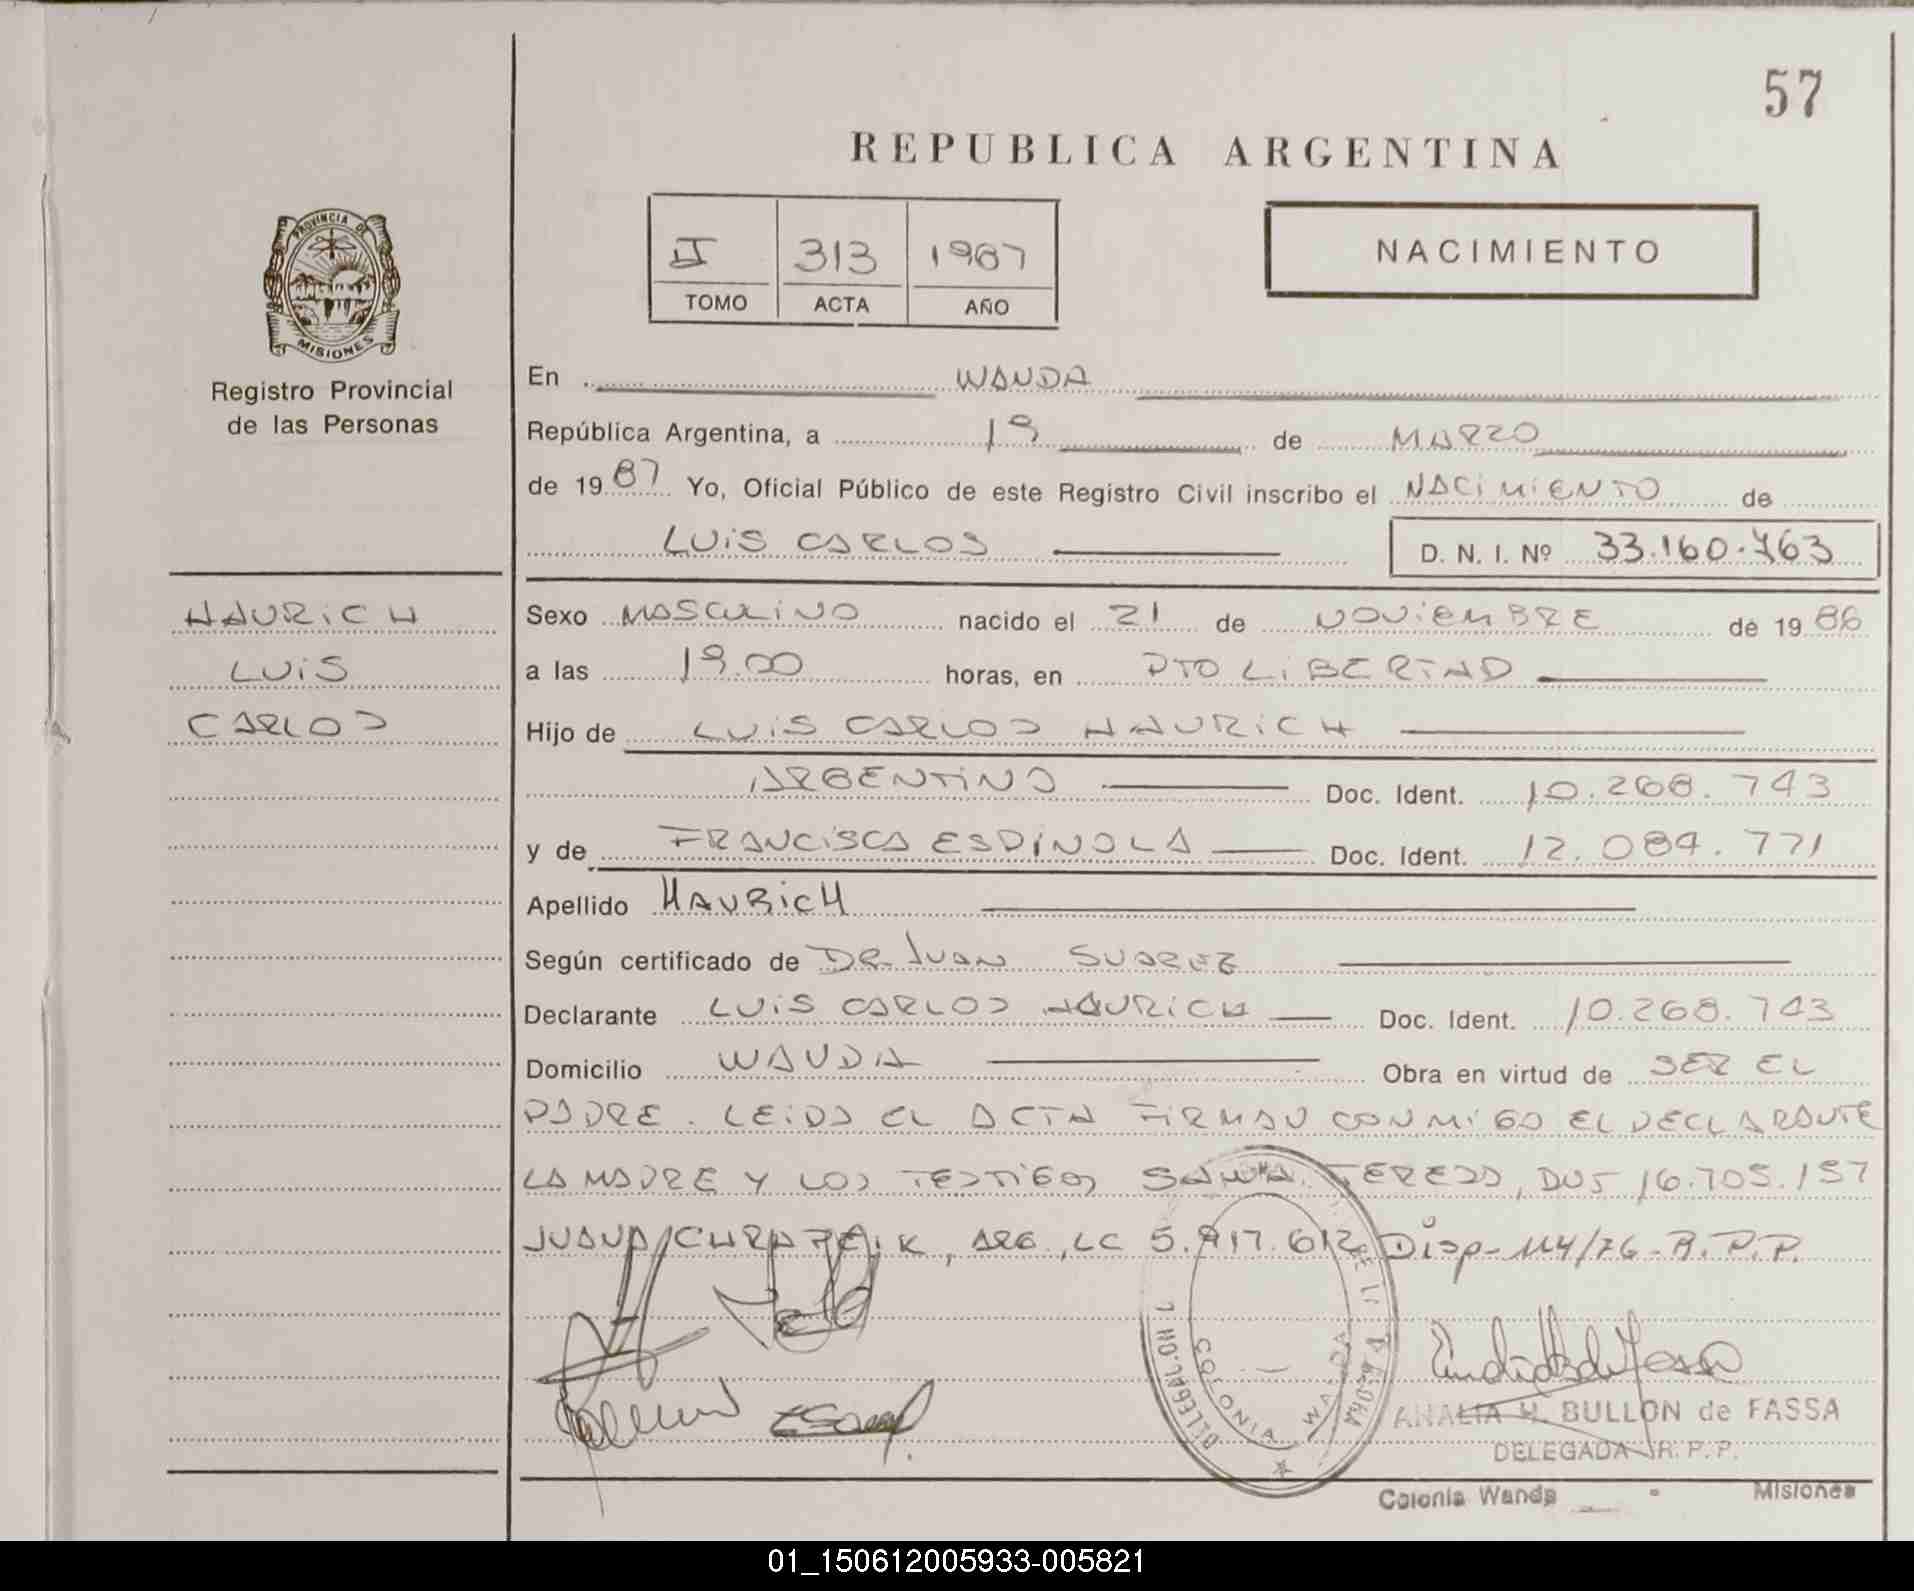 57
REPUBLICA ARGENTINA
PROVINCIA DE
MISIONES
Registro Provincial
de las Personas
II 313 1987
TOMO ACTA AÑO
NACIMIENTO
En WANDA
República Argentina, a 19 de MARZO
de 1987 Yo, Oficial Público de este Registro Civil inscribo el NACIMIENTO de
LUIS CARLOS D. N. I. Nº 33.160.763
HAURICH
LUIS
CARLOS
Sexo MASCULINO nacido el 21 de NOVIEMBRE de 1986
a las 19.00 horas, en PTO LIBERTAD
Hijo de LUIS CARLOS HAURICH
ARGENTINO Doc. Ident. 10.268.743
y de FRANCISCA ESPINOLA Doc. Ident. 12.084.771
Apellido HAURICH
Según certificado de DR JUAN SUAREZ
Declarante LUIS CARLOS HAURICH Doc. Ident. 10.268.743
Domicilio WANDA Obra en virtud de SER EL
PADRE. LEIDA EL ACTA FIRMAN CONMIGO EL DECLARANTE
LA MADRE Y LOS TESTIGOS TERESA, 16.705.157
JUANA ARG., LC 5.917.612 Disp- 114/76-R.P.P.
COLONIA WANDA
ANALIA H. BULLON de FASSA
DELEGADA R. P. P.
Colonia Wanda - Misiones
01_150612005933-005821